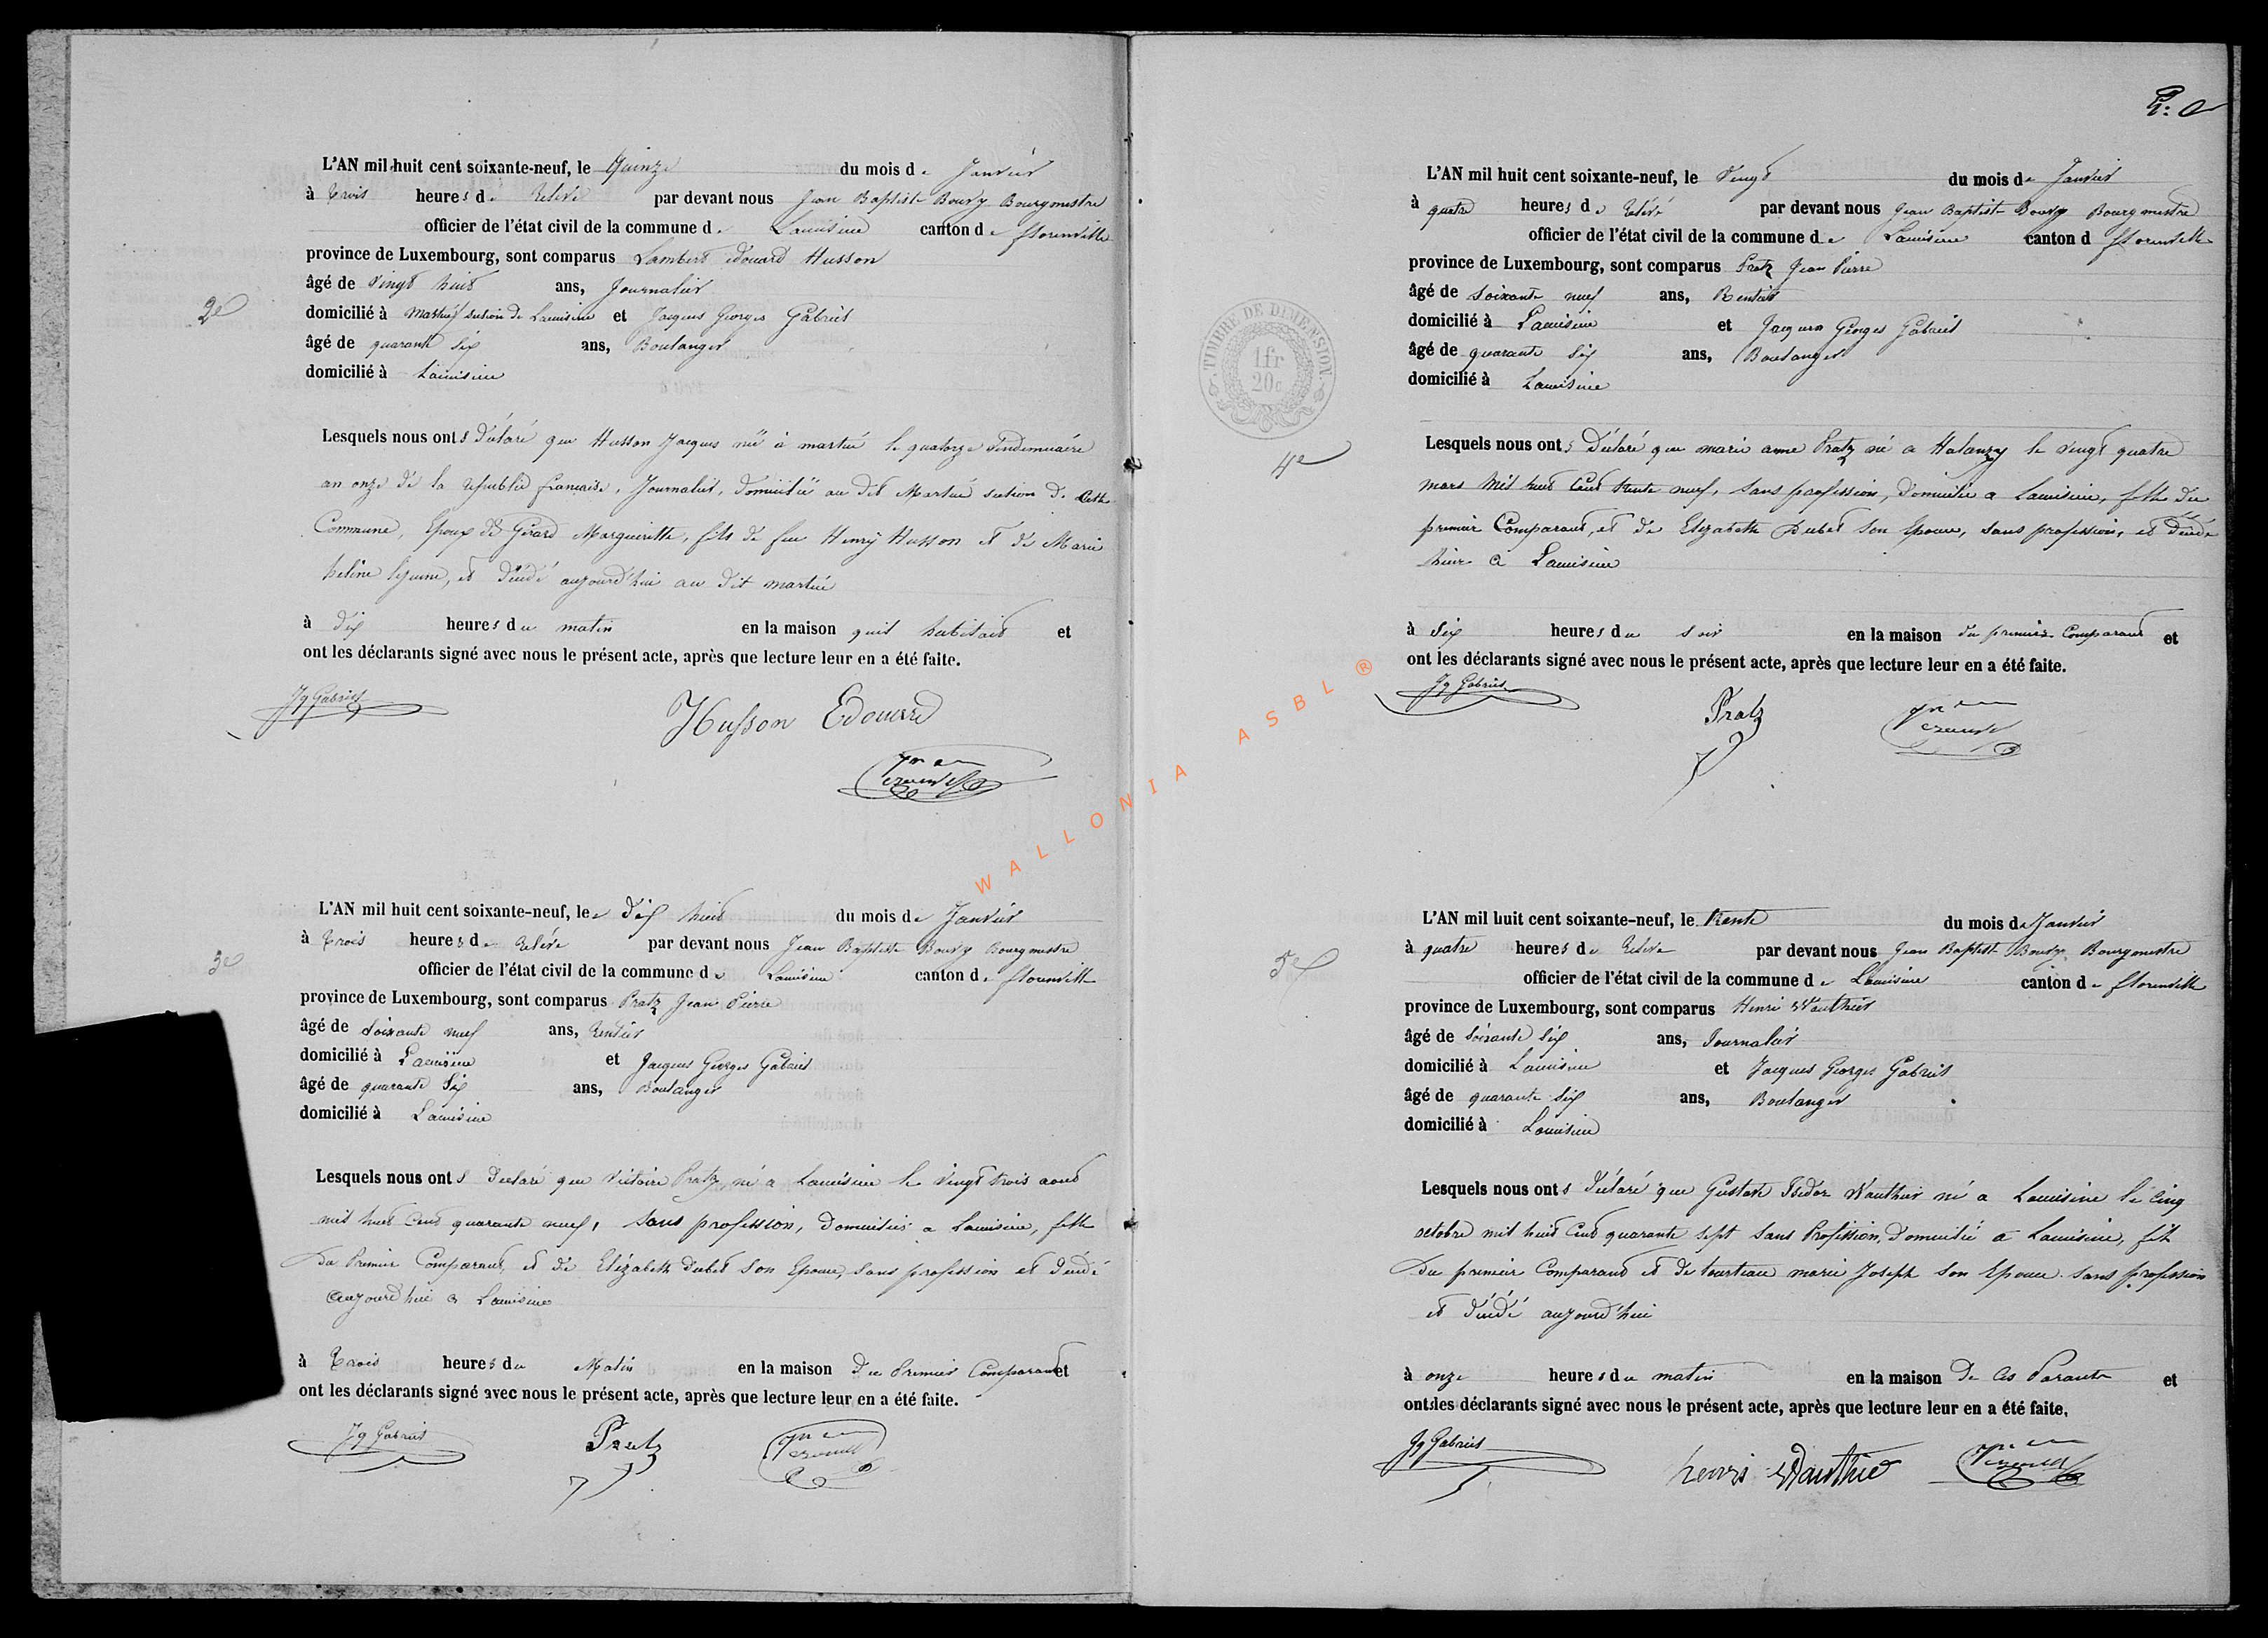 L'AN mil huit cent soixante-neuf, le Quinze du mois de Janvier
à trois heures de relevé par devant nous Jean Baptiste Bourg Bourgmestre
officier de l'état civil de la commune de Lacuisine canton de florenville
province de Luxembourg, sont comparus Lambert édouard Husson
âgé de vingt huit ans, Journalier
2e
domicilié à Martué section de Lacuisine et Jacques Georges Gabriel
âgé de quarante six ans, Boulanger
domicilié à Lacuisine
Lesquels nous onts déclaré que Husson Jacques né à martué le quatorze vendemiaire
an onze de la republic francaise, Journalier, domicilié au dit Martué section de Cette
Commune, Epoux de Gérard Margueritte, fils de feu Henry Husson et de Marie
heléne lejeune, et décédé aujourd'hui au dit martué
à dix heures du matin en la maison quil habitait et
ont les déclarants signé avec nous le présent acte, après que lecture leur en a été faite.
Jg Gabriel
Husson Edouard
L'AN mil huit cent soixante-neuf, le dix huit du mois de Janvier
à trois heures de relévé par devant nous Jean Baptiste Bourg Bourgmestre
3e
officier de l'état civil de la commune de Lacuisine canton de florenville
province de Luxembourg, sont comparus Pratz Jean Pierre
âgé de soixante neuf ans, rentier
domicilié à Lacuisine et Jacques Georges Gabriel
âgé de quarante six ans, Boulanger
domicilié à Lacuisine
Lesquels nous onts declaré que victoire Pratz né a Lacuisine le vingt trois aout
mil huit Cent quarante neuf, sans profession, domicilié a Lacuisine, fille
du Premier Comparant, et de Elizabeth dubet son Epouse, sans profession et décédé
aujourd'hui a Lacuisine
à trois heures du Matin en la maison du Premier Comparant et
ont les déclarants signé avec nous le présent acte, après que lecture leur en a été faite.
Jg Gabriel
Pratz
L'AN mil huit cent soixante-neuf, le vingt du mois de Janvier
à quatre heures de relevé par devant nous Jean Baptiste Bourg Bourgmestre
officier de l'état civil de la commune de Lacuisine canton d florenville
province de Luxembourg, sont comparus Pratz Jean Pierre
âgé de soixante neuf ans, Rentier
domicilié à Lacuisine et Jacques Georges Gabriel
âgé de quarante six ans, Boulanger
domicilié à Lacuisine
TIMBRE DE DIMENSION
1fr
20c
4e
Lesquels nous onts déclaré que marie anne Pratz né a Halanzy le vingt quatre
mars mil huit Cent trente neuf, sans profession, domicilié a Lacuisine, fille du
premier Comparant, et de Elizabeth Dubet son Epouse, sans profession, et décédé
hier a Lacuisine
à six heures du soir en la maison du premier Comparant et
ont les déclarants signé avec nous le présent acte, après que lecture leur en a été faite.
Jg Gabriel
Pratz
L'AN mil huit cent soixante-neuf, le trente du mois de Janvier
à quatre heures de relevé par devant nous Jean Baptiste Bourg Bourgmestre
5e
officier de l'état civil de la commune de Lacuisine canton de florenville
province de Luxembourg, sont comparus Henri Wauthier
âgé de soixante six ans, Journalier
domicilié à Lacuisine et Jacques Georges Gabriel
âgé de quarante six ans, Boulanger
domicilié à Lacuisine
Lesquels nous onts déclaré que Gustave Isidor Wauthier né a Lacuisine le Cinq
octobre mil huit Cent quarante sept sans Profession, domicilié a Lacuisine, fils
du premier Comparant et de tourteau marie Joseph son Epouse sans profession
et décédé aujourd'hui
à onze heures du matin en la maison de Ces Parants et
ont les déclarants signé avec nous le présent acte, après que lecture leur en a été faite.
Jg Gabriel
henri Wauthier
WALLONIA ASBL ®